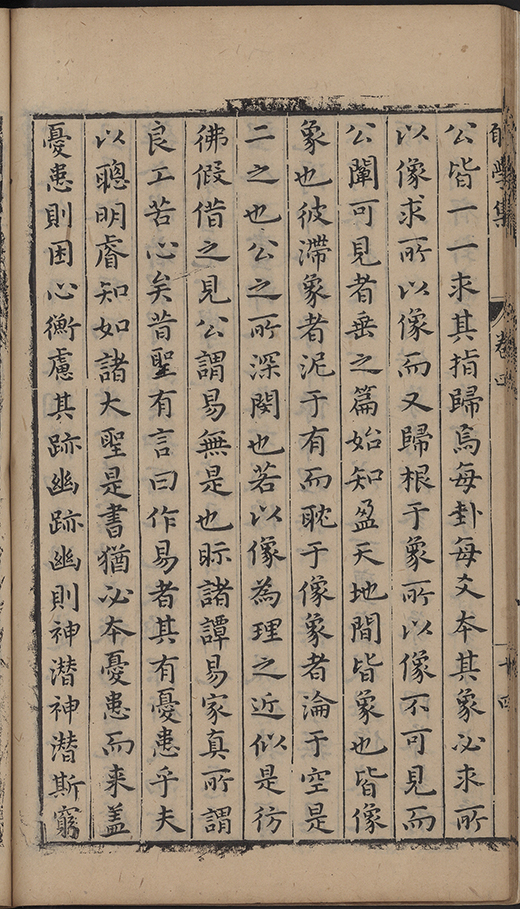 學集
卷四
十四
公皆一一求其指歸焉每卦每爻本其象必求所
以像求所以像而又歸根于象所以像不可見而
公闡可見者垂之篇始知盈天地間皆象也皆像
象也彼滯象者泥于有而耽于像象者淪于空是
二之也公之所深閔也若以像為理之近似是彷
彿假借之見公謂易無是也眎諸譚易家真所謂
良工苦心矣昔聖有言曰作易者其有憂患乎夫
以聰明睿知如諸大聖是書猶必本憂患而来盖
憂患則困心衡慮其跡幽跡幽則神潜神潜斯窮